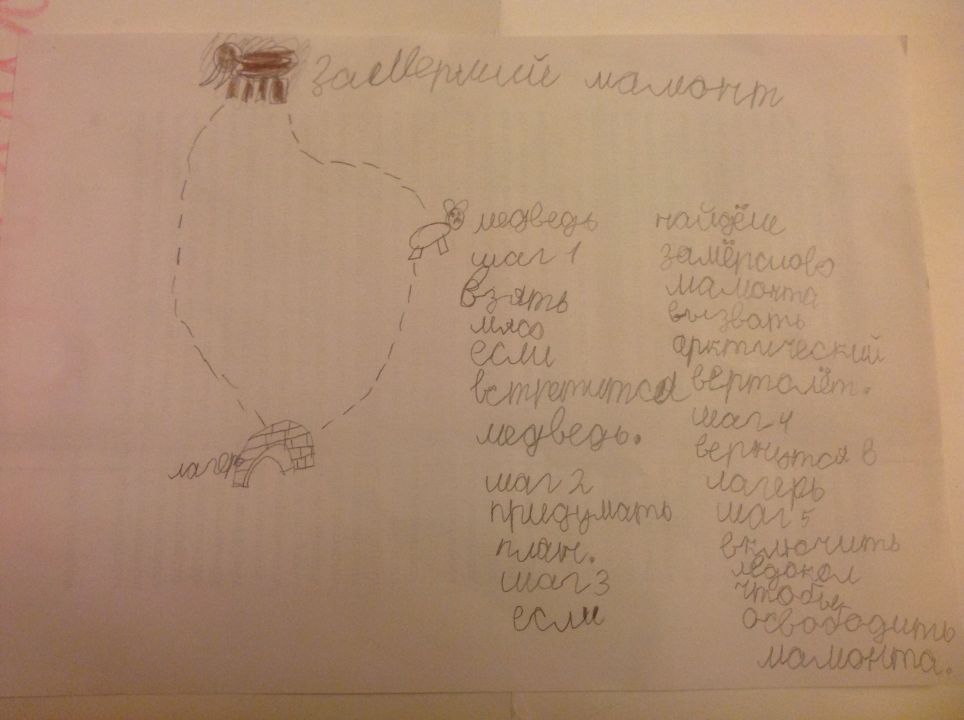 замерший мамонт
медведь
шаг 1
взять
мясо
если
встретится
медведь.
шаг 2
придумать
план.
шаг 3
если
найдём
замёрсново
мамонта
вызвать
арктический
вертолёт.
шаг 4
вернутся в
лагерь
шаг 5
включить
ледокол
чтобы
освободить
мамонта.
лагерь